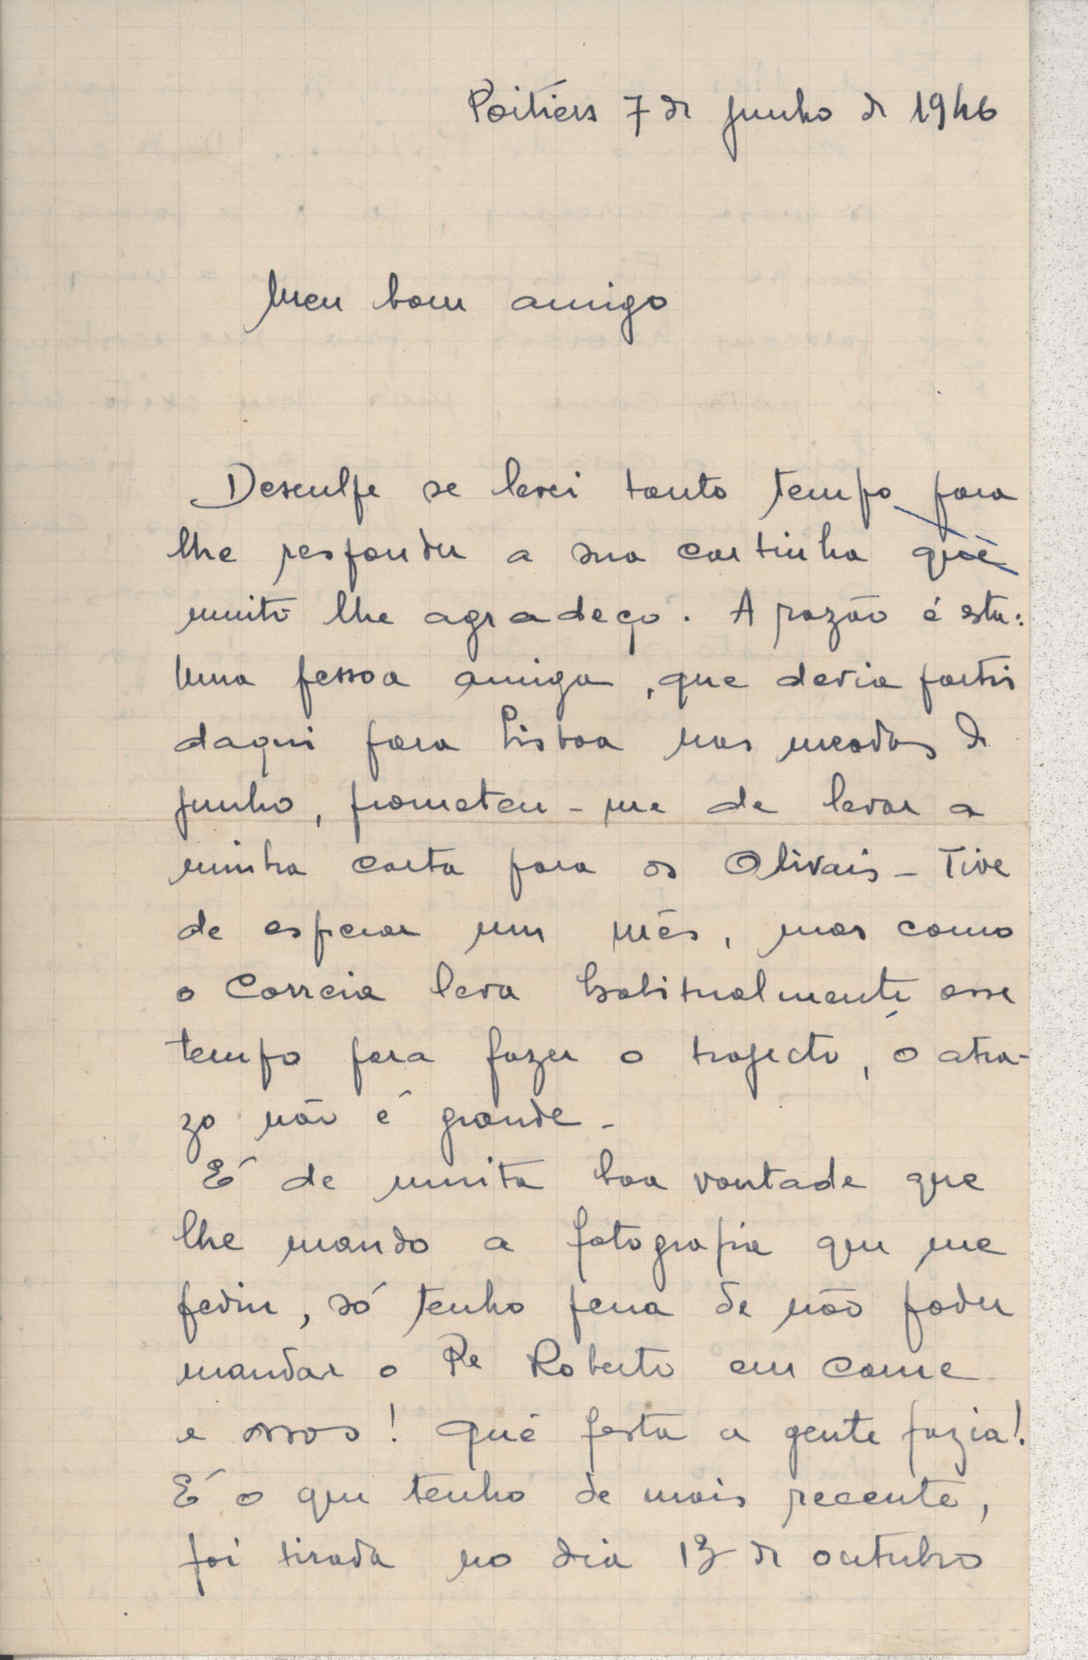 Poitiérs 7 de junho de 1946
Meu bom amigo
Desculpe se levei tanto tempo para
lhe responder a sua cartinha que
muito lhe agradeço. A razão é esta:
Uma pessoa amiga, que devia partir
daqui para Lisboa nos meados de
junho, prometeu-me de levar a
minha carta para os Olivais - Tive
de esperar um mês, mas como
o Correia leva habitualmente esse
tempo para fazer o trajecto, o atra-
zo não é grande -
É de muita boa vontade que
lhe mando a fotografia que me
pediu, só tenho pena de não poder
mandar o Pe Roberto em carne
e ossos! Que festa a gente fazia!
É o que tenho de mais recente,
foi tirada no dia 13 de outubro